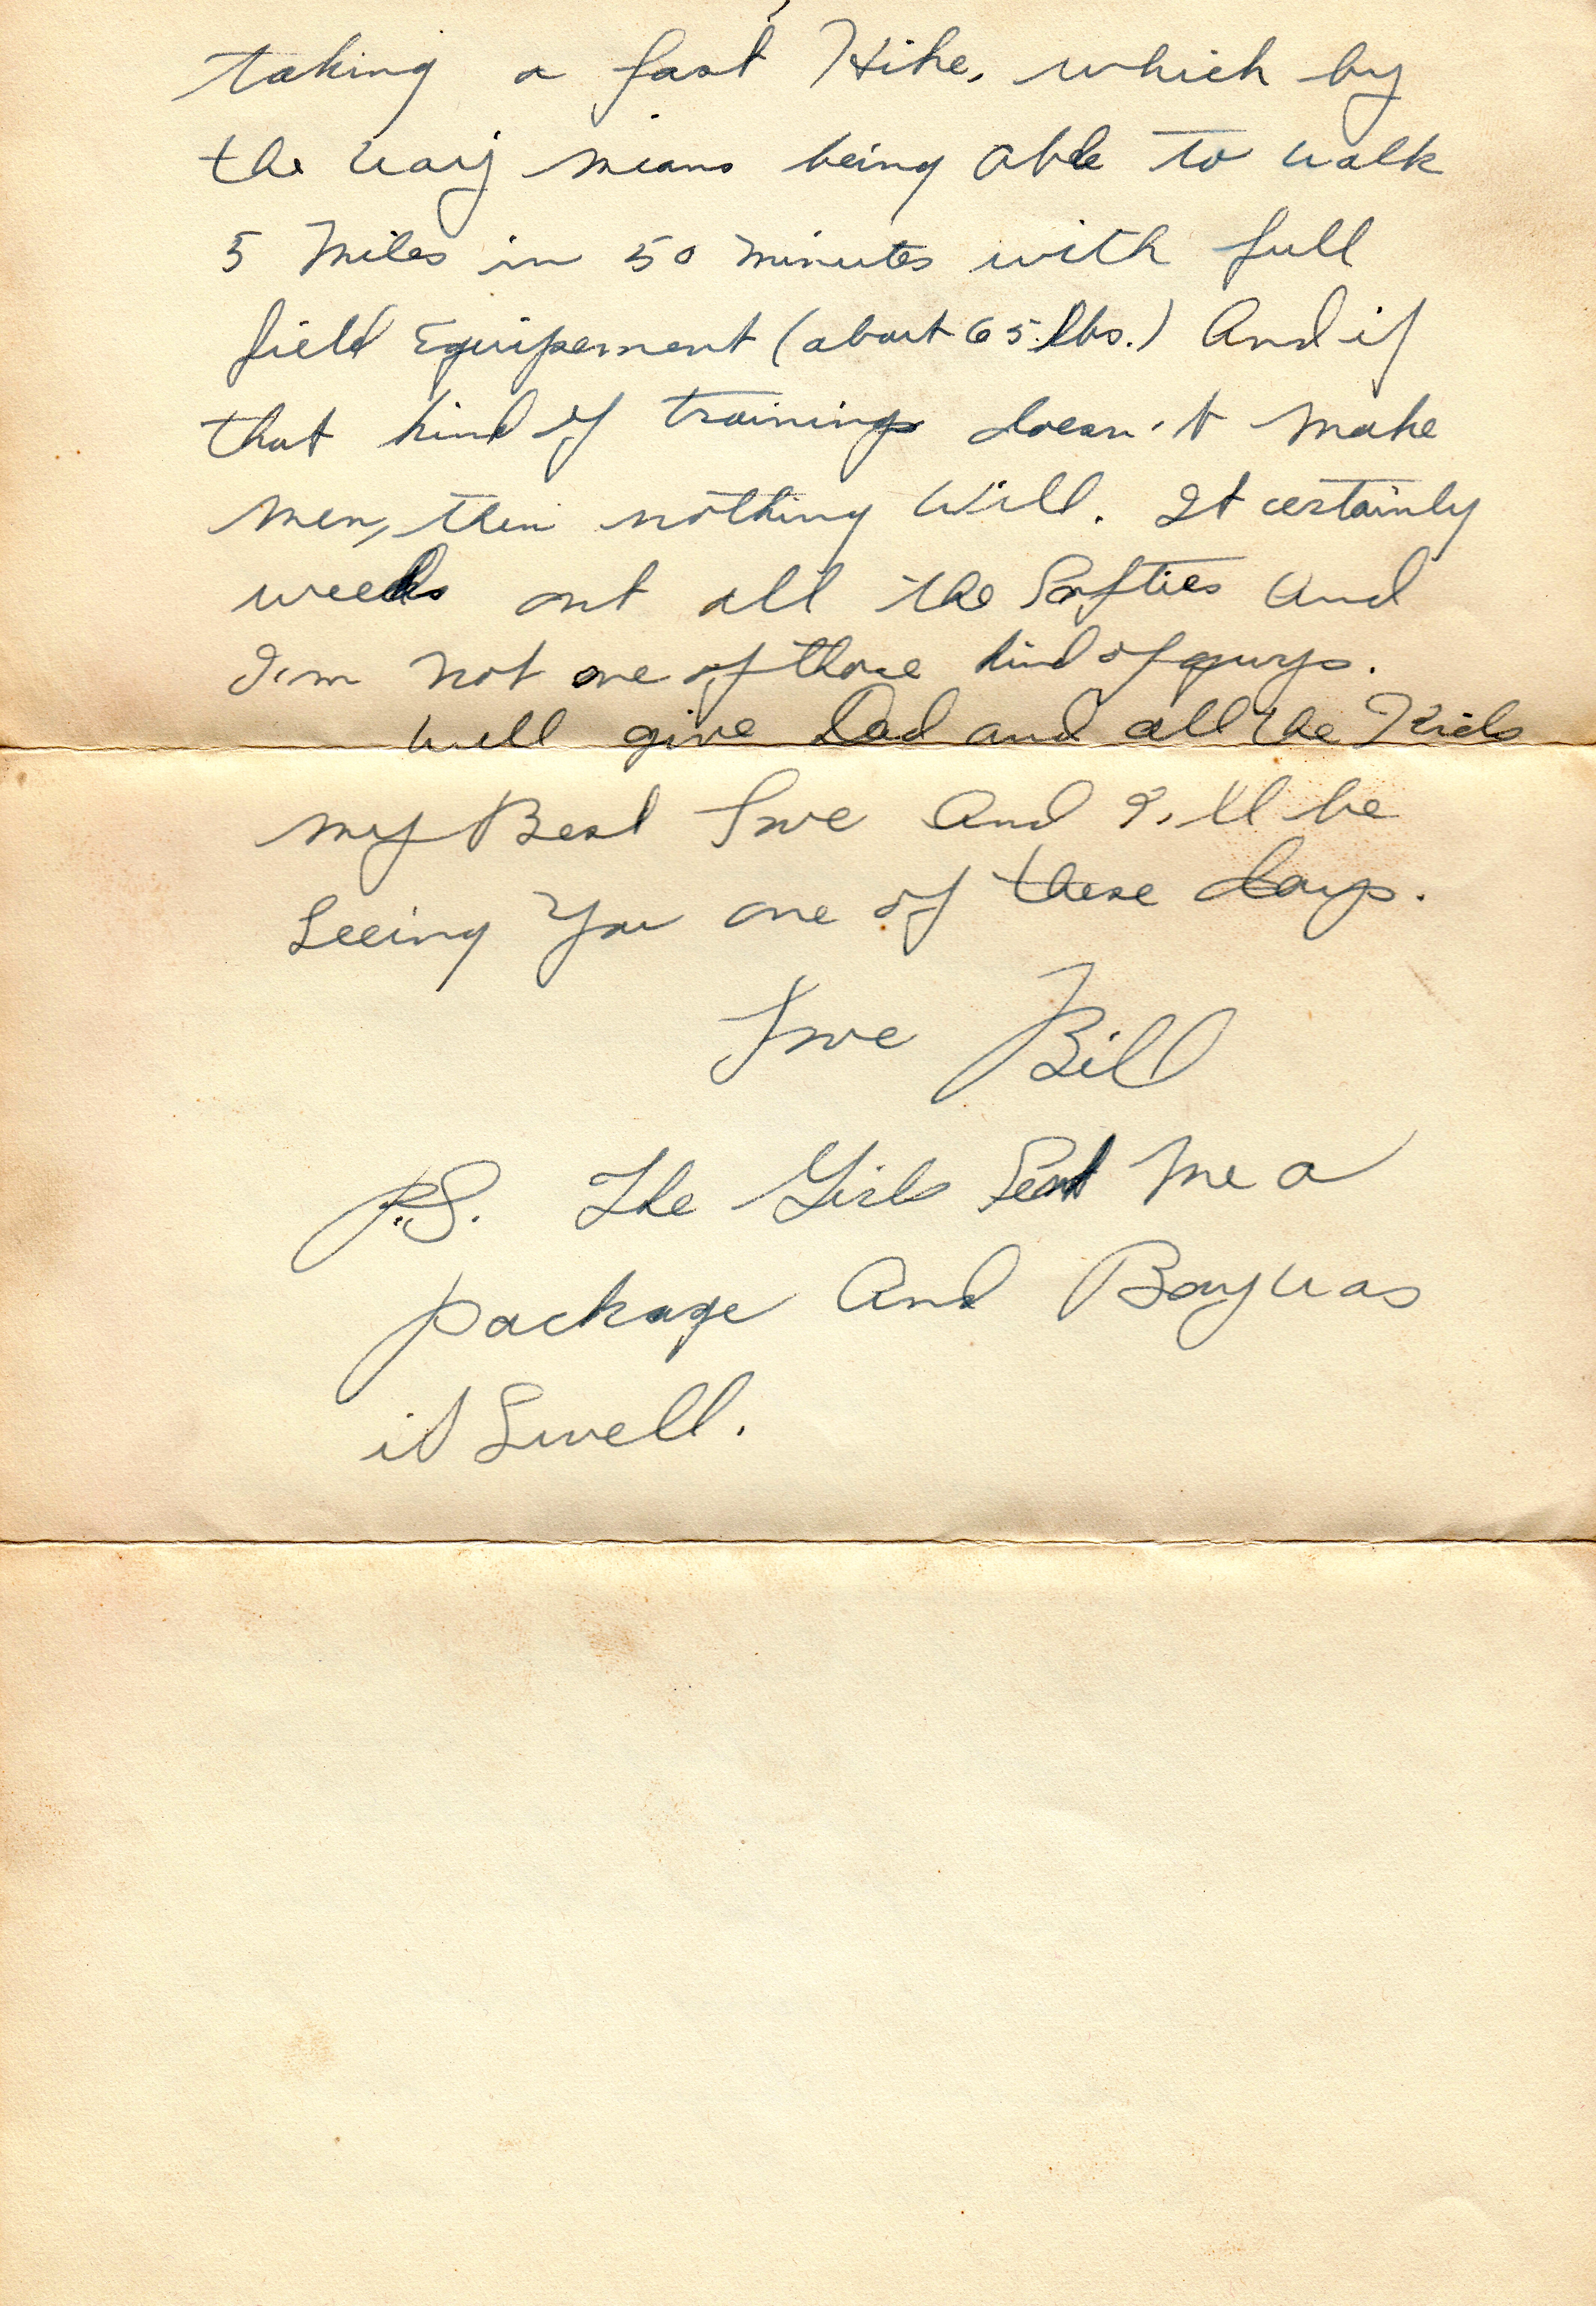 taking a fast Hike, which by
the way means being able to walk
5 Miles in 50 minutes with full
field Equipement (about 65 lbs.) And if
that kind of training doesn't make
men, then nothing Will. It certainly
weeds out all the Softies and
I'm not one of those kind of guys.
Well give Dad and all the Kids
my Best Love And I'll be
Seeing You one of these days.
Love Bill
P.S. The Girls Sent me a
package And Boy was
it Swell.